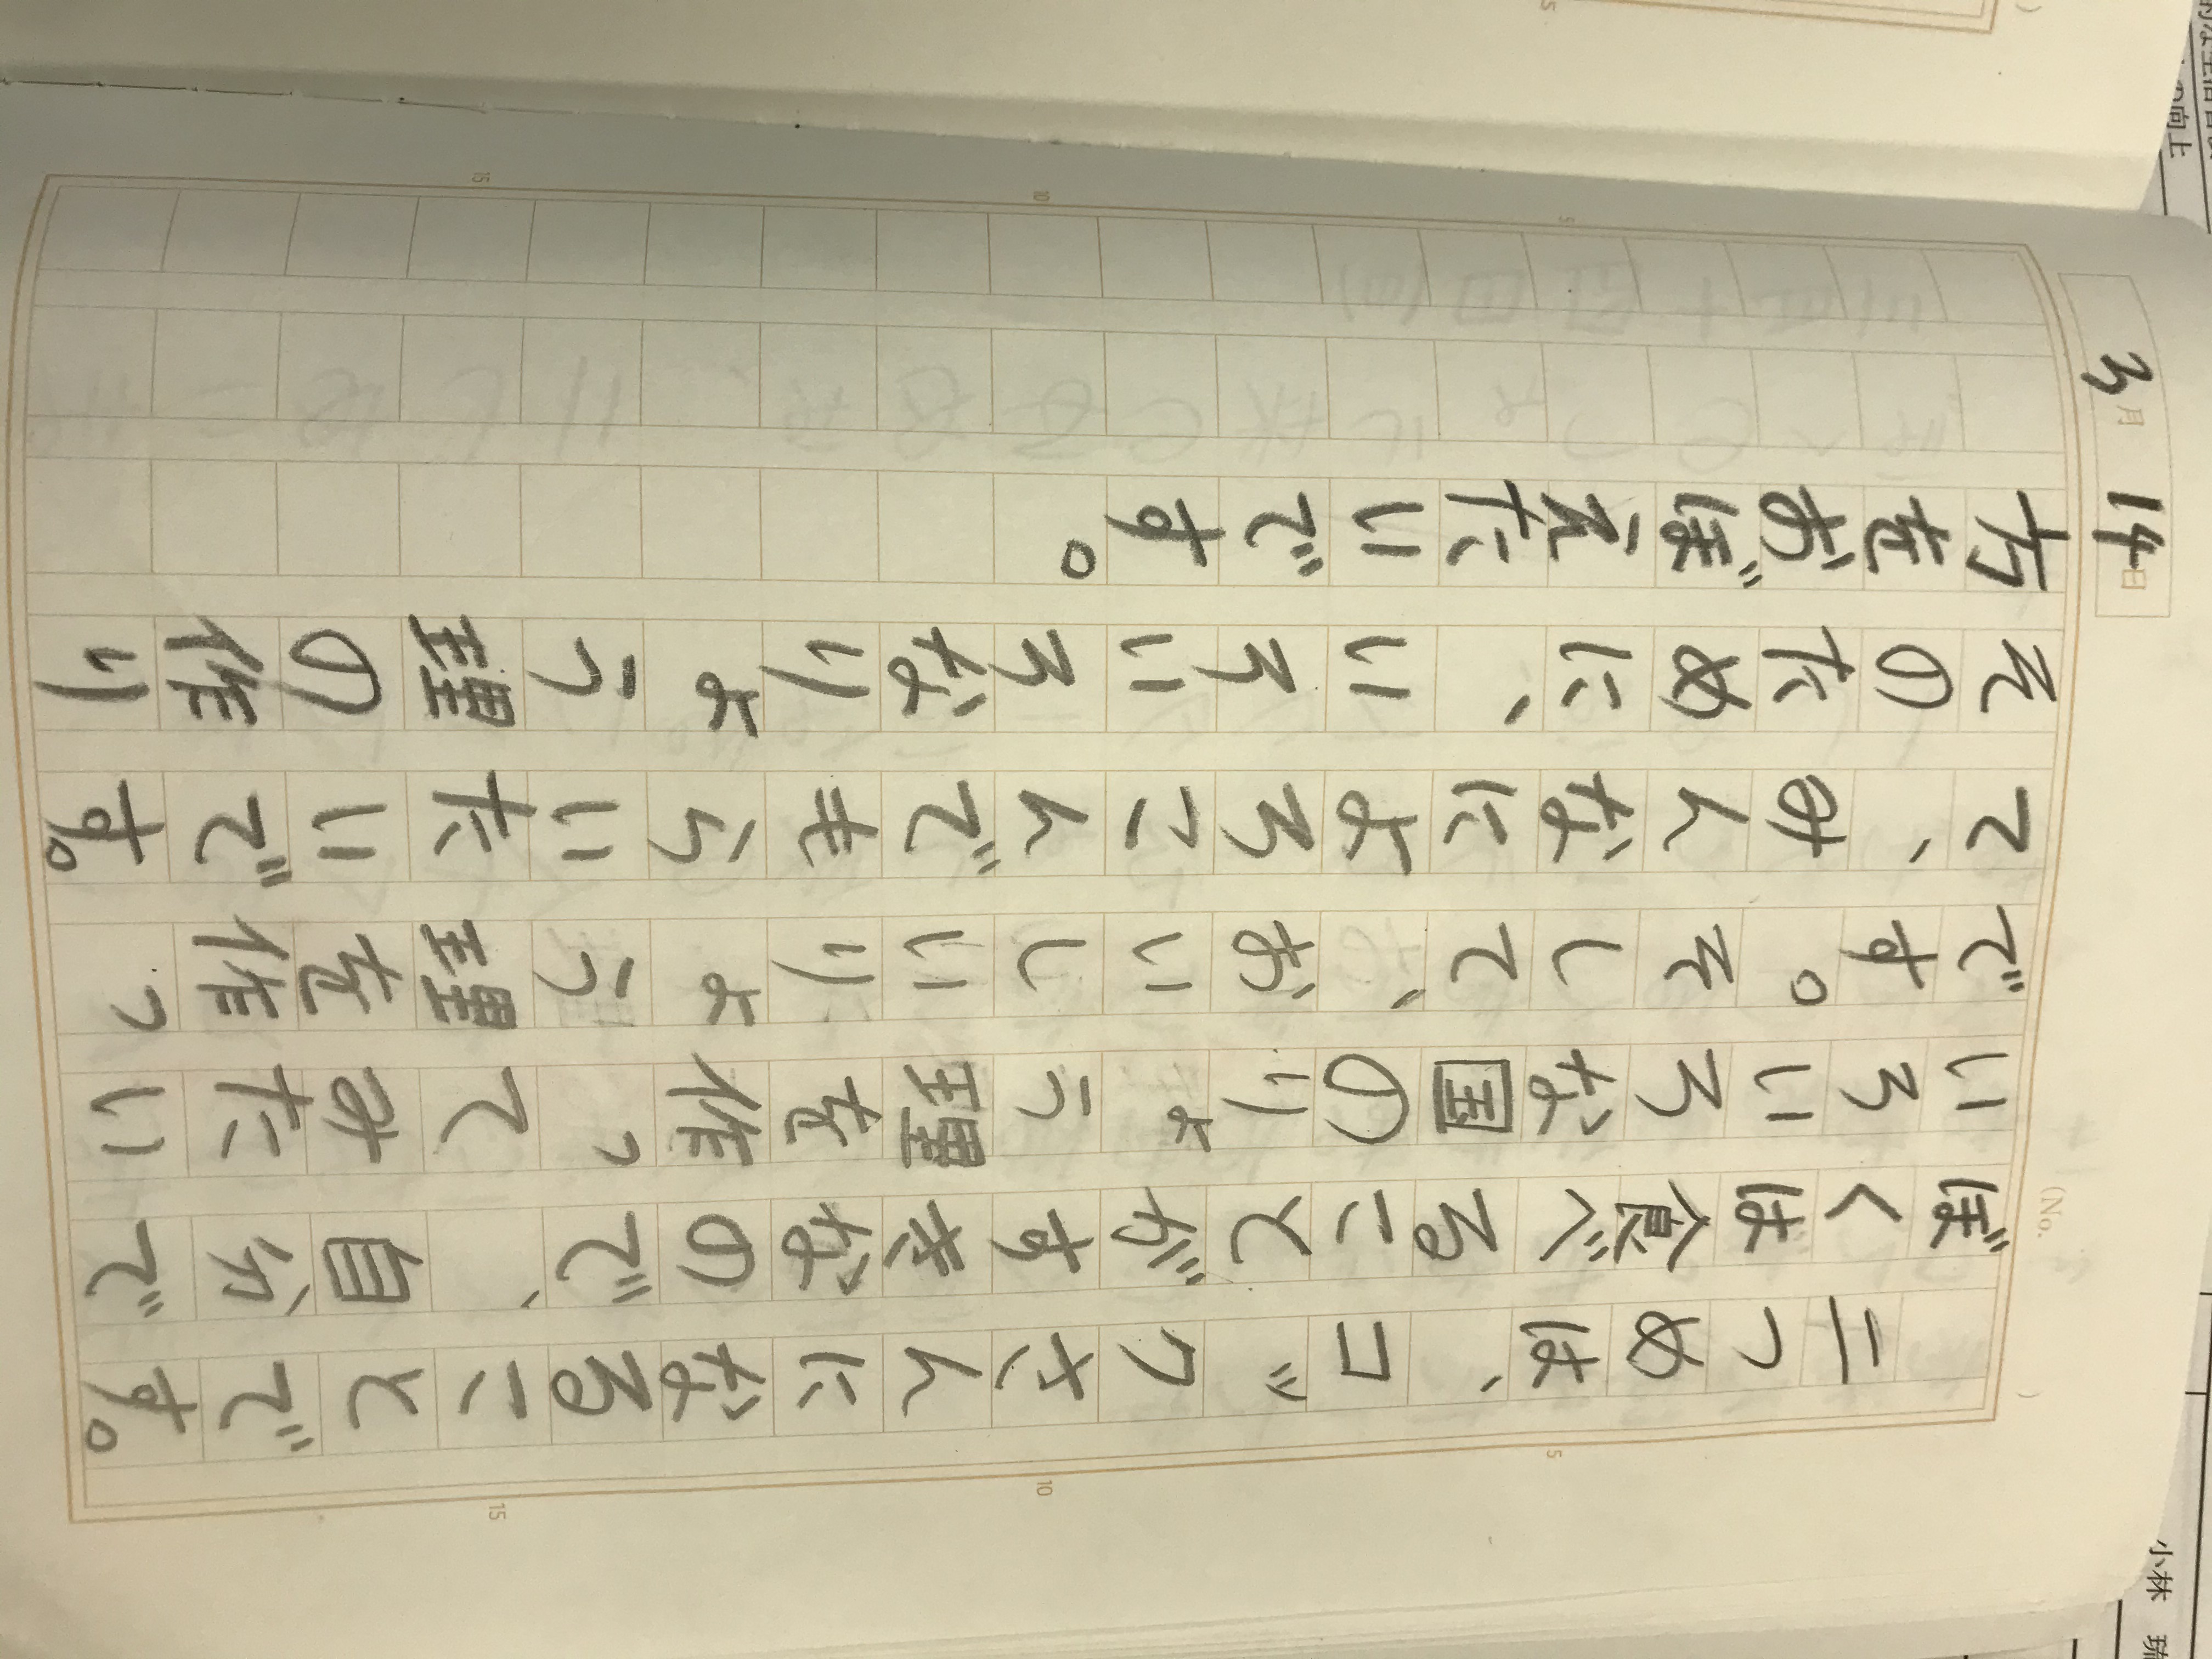 3月14日
(No. )
二つめは、コックさんになることです。
ぼくは食べることがすきなので、自分で
いろいろな国のりょう理を作ってみたい
です。そして、おいしいりょう理を作っ
て、みんなによろこんでもらいたいです。
そのために、いろいろなりょう理の作り
方をおぼえたいです。
5
10
15
5
10
15
5
の向上
小林